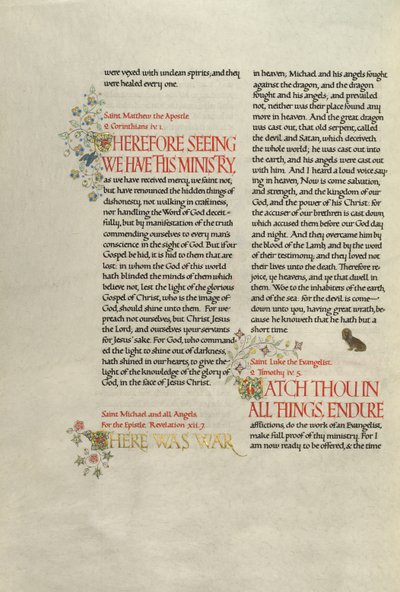 were vexed with unclean spirits; and they
were healed every one.
Saint Matthew the Apostle
2 Corinthians iv. 1.
THEREFORE SEEING
WE HAVE THIS MINISTRY,
as we have received mercy, we faint not;
but have renounced the hidden things of
dishonesty, not walking in craftiness,
nor handling the Word of God deceit-
fully, but by manifestation of the truth
commending ourselves to every man's
conscience in the sight of God. But if our
Gospel be hid, it is hid to them that are
lost: in whom the God of this world
hath blinded the minds of them which
believe not, lest the light of the glorious
Gospel of Christ, who is the image of
God, should shine unto them. For we
preach not ourselves, but Christ Jesus
the Lord; and ourselves your servants
for Jesus' sake. For God, who command-
ed the light to shine out of darkness,
hath shined in our hearts, to give the
light of the knowledge of the glory of
God, in the face of Jesus Christ.
Saint Michael and all Angels.
For the Epistle. Revelation xii. 7.
THERE WAS WAR
in heaven; Michael and his angels fought
against the dragon, and the dragon
fought and his angels; and prevailed
not, neither was their place found any
more in heaven. And the great dragon
was cast out, that old serpent, called
the devil and Satan, which deceiveth
the whole world; he was cast out into
the earth, and his angels were cast out
with him. And I heard a loud voice say-
ing in heaven, Now is come salvation,
and strength, and the kingdom of our
God, and the power of his Christ: for
the accuser of our brethren is cast down,
which accused them before our God day
and night. And they overcame him by
the blood of the Lamb and by the word
of their testimony; and they loved not
their lives unto the death. Therefore re-
joice, ye heavens, and ye that dwell in
them. Woe to the inhabiters of the earth,
and of the sea: for the devil is come
down unto you, having great wrath, be-
cause he knoweth that he hath but a
short time.
Saint Luke the Evangelist.
2 Timothy iv. 5.
WATCH THOU IN
ALL THINGS, ENDURE
afflictions, do the work of an Evangelist,
make full proof of thy ministry. For I
am now ready to be offered, & the time